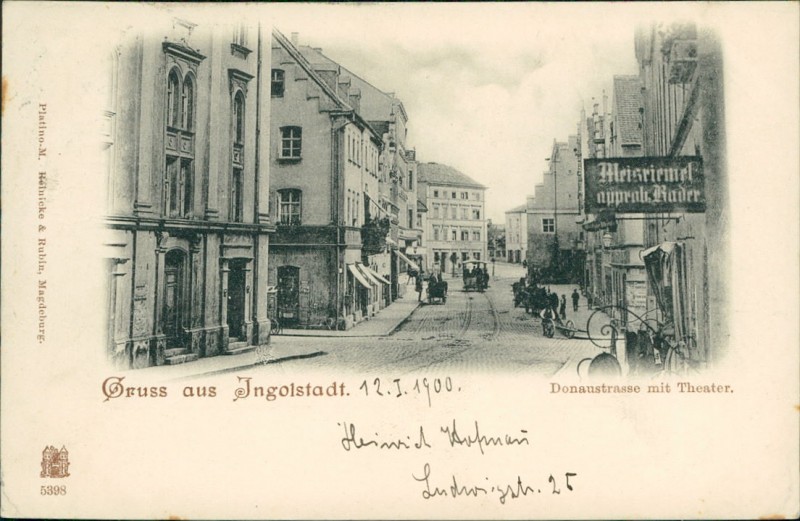 Meisriemel
approb. Bader
Platino-M. Kölnicke & Rubin, Magdeburg.
Gruss aus Ingolstadt. 12.I.1900.
Donaustrasse mit Theater.
Heinrich Hofmann
Ludwigstr. 25
5398